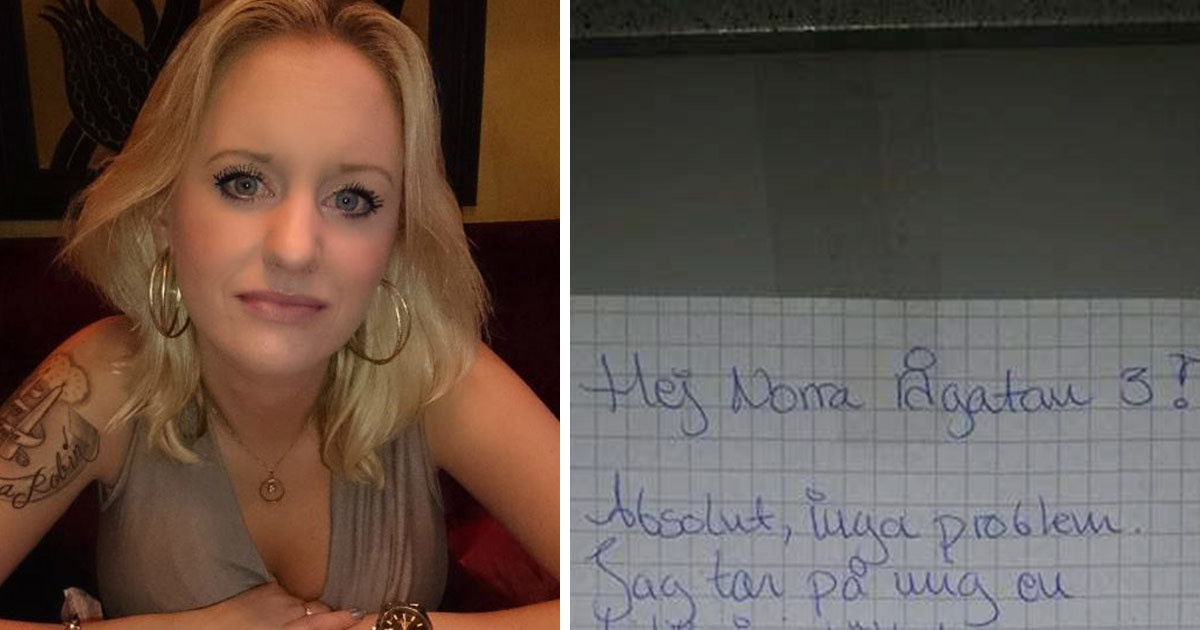 a Robin
Hej Norra Rågatan 3!
Absolut, inga problem.
Jag tar på mig en